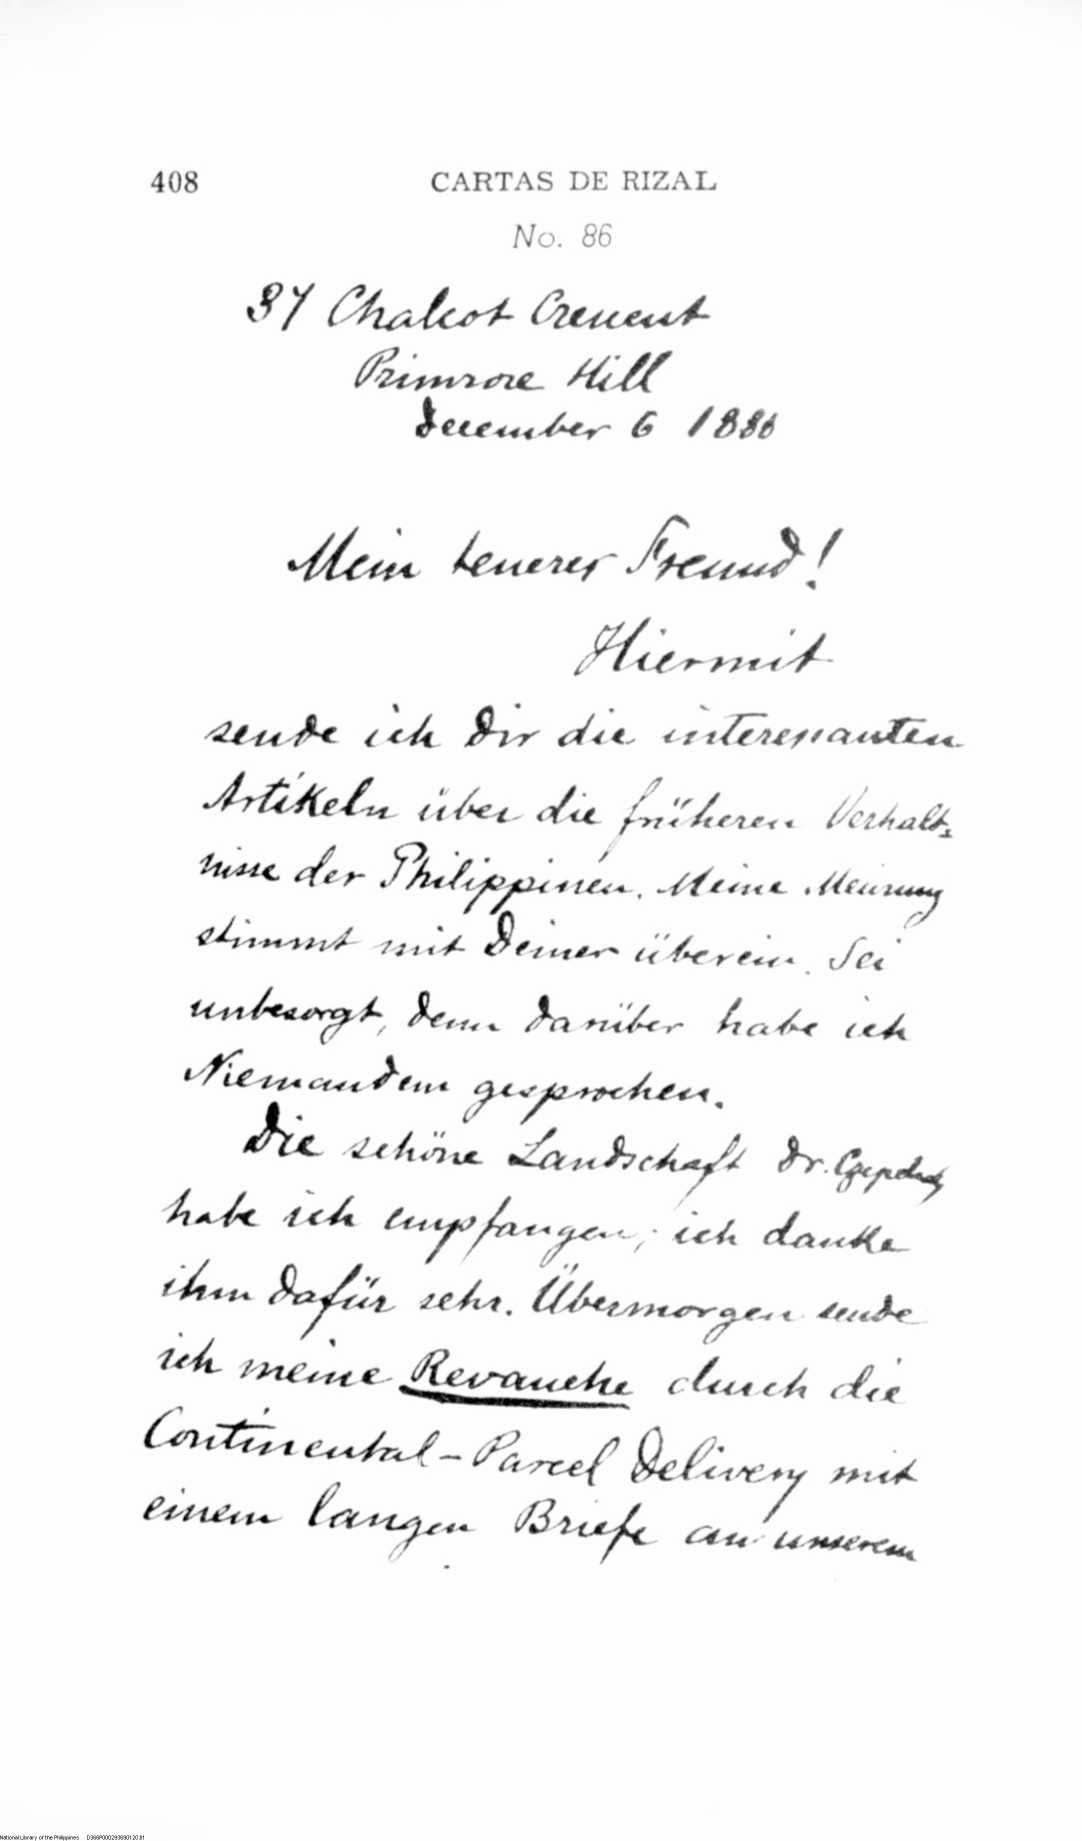 408 CARTAS DE RIZAL
No. 86
37 Chalcot Crescent
Primrose Hill
December 6 1888
Mein teuerer Freund!
Hiermit
sende ich Dir die interessanten
Artikeln über die früheren Verhält-
nisse der Philippinen. Meine Meinung
stimmt mit Deiner überein. Sei
unbesorgt, denn darüber habe ich
Niemandem gesprochen.
Die schöne Landschaft Dr. Czepelack
habe ich empfangen; ich danke
ihm dafür sehr. Übermorgen sende
ich meine Revanche durch die
Continental-Parcel Delivery mit
einem langen Briefe an unserem
National Library of the Philippines